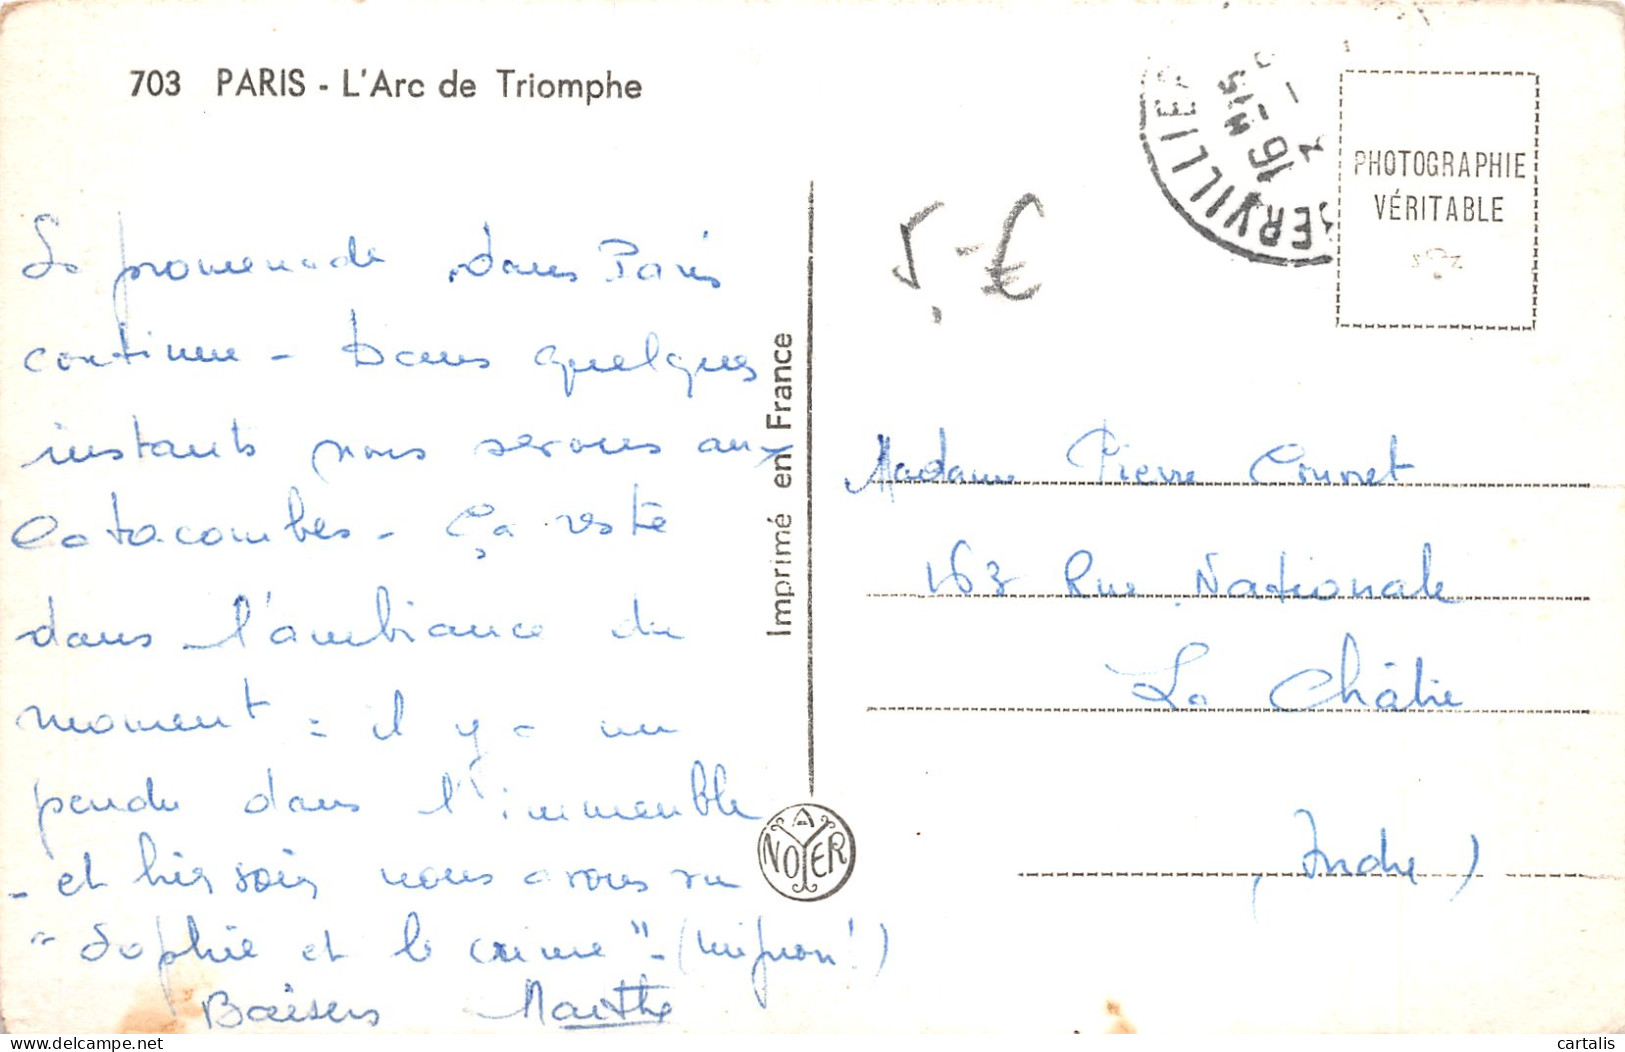 703 PARIS - L'Arc de Triomphe
La promenade dans Paris
continue - Dans quelques
instants nous serons aux
Catacombes - Ça reste
dans l'ambiance du
moment = il y a un
pendu dans l'immeuble
- et hier soir nous avons vu
"Sophie et le crime" - (mignon!)
Baisers Marthe
Imprimé en France
NOYER
A
5,-€
SERVILLIE
16 H15
PHOTOGRAPHIE
VÉRITABLE
Madame Pierre
163 Rue Nationale
La Châtre
(Indre)
cartalis